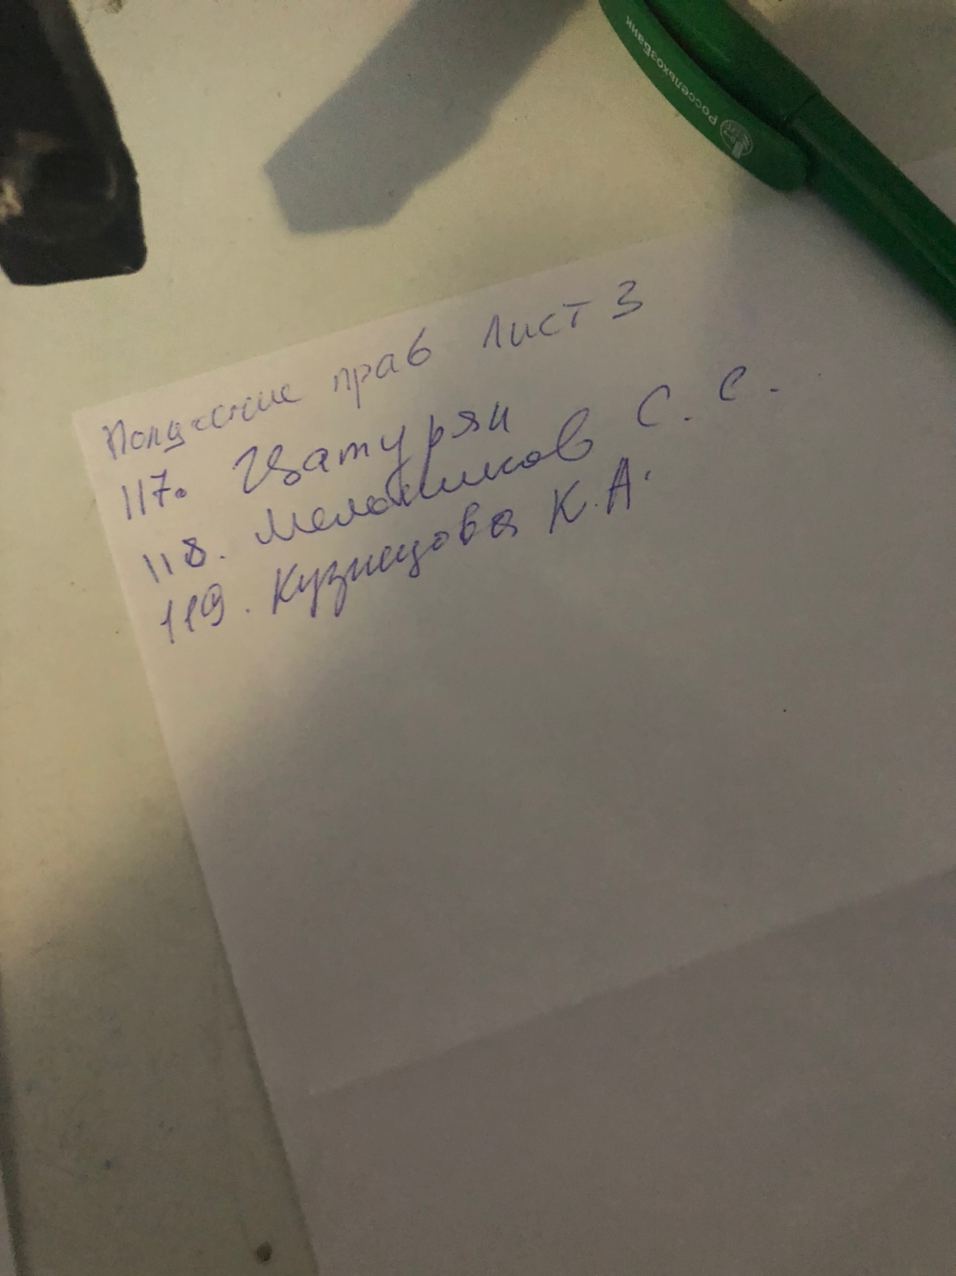 РоссельхозБанк
Получение прав Лист 3
117. Цатурян
118. Мелетликов С. С.
119. Кузнецова К.А.